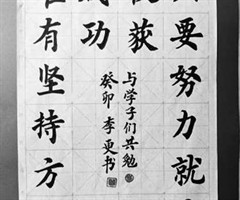 要努力就
获
成功
有坚持方
与学子们共勉
癸卯 李更书